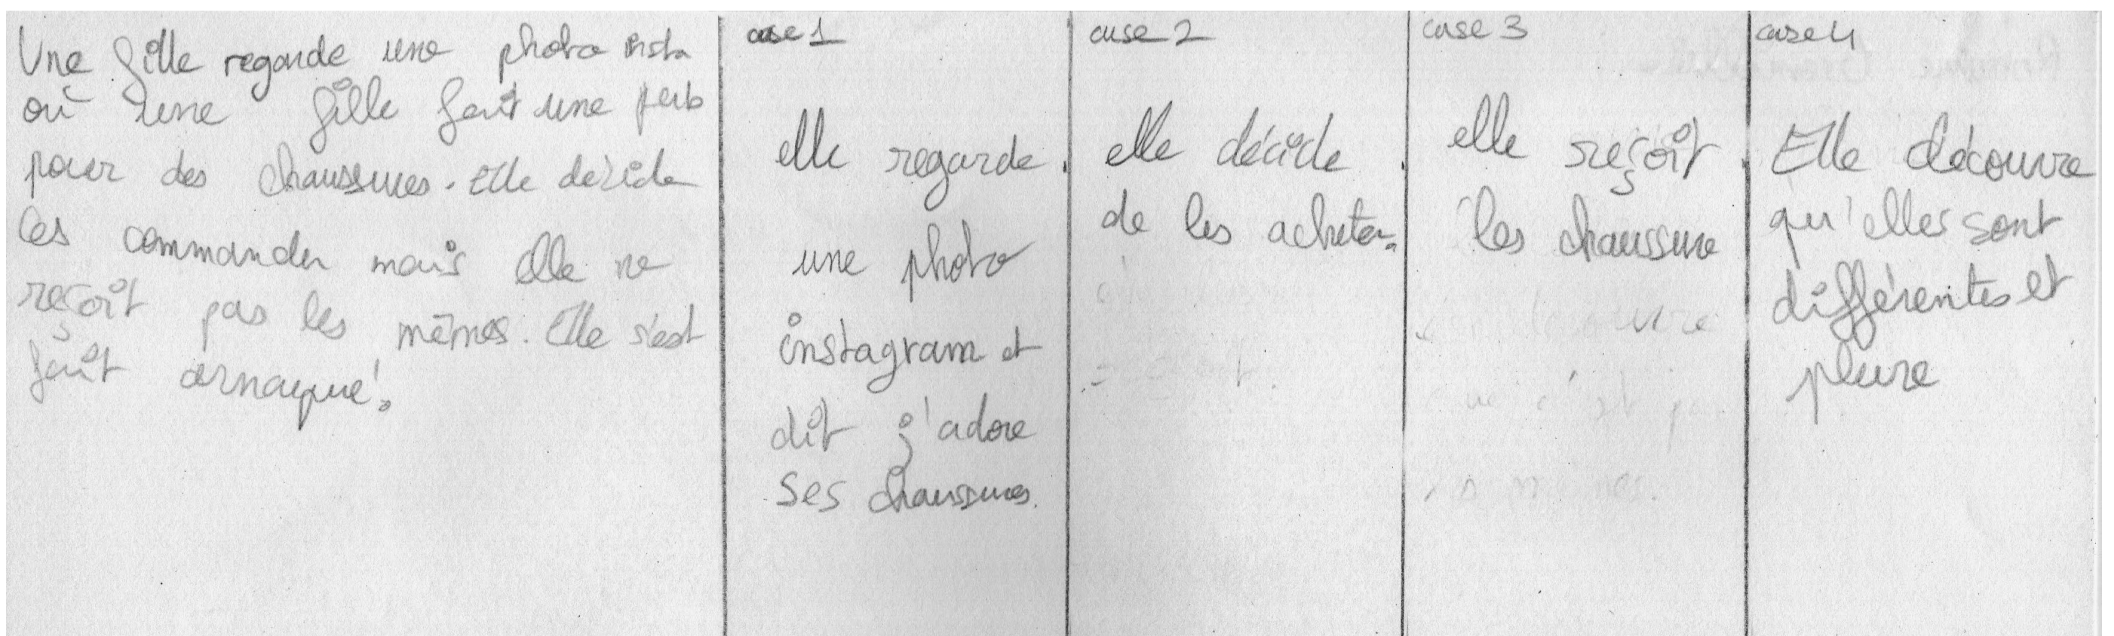 Une fille regarde une photo insta
où une fille fait une pub
pour des chaussures. Elle décide
les commander mais elle ne
reçoit pas les mêmes. Elle s'est
fait arnaqué.
case 1
elle regarde
une photo
instagram et
dit j'adore
ses chaussures.
case 2
elle décide
de les acheter.
case 3
elle reçoit
les chaussure
case 4
Elle découvre
qu'elles sont
différentes et
pleure